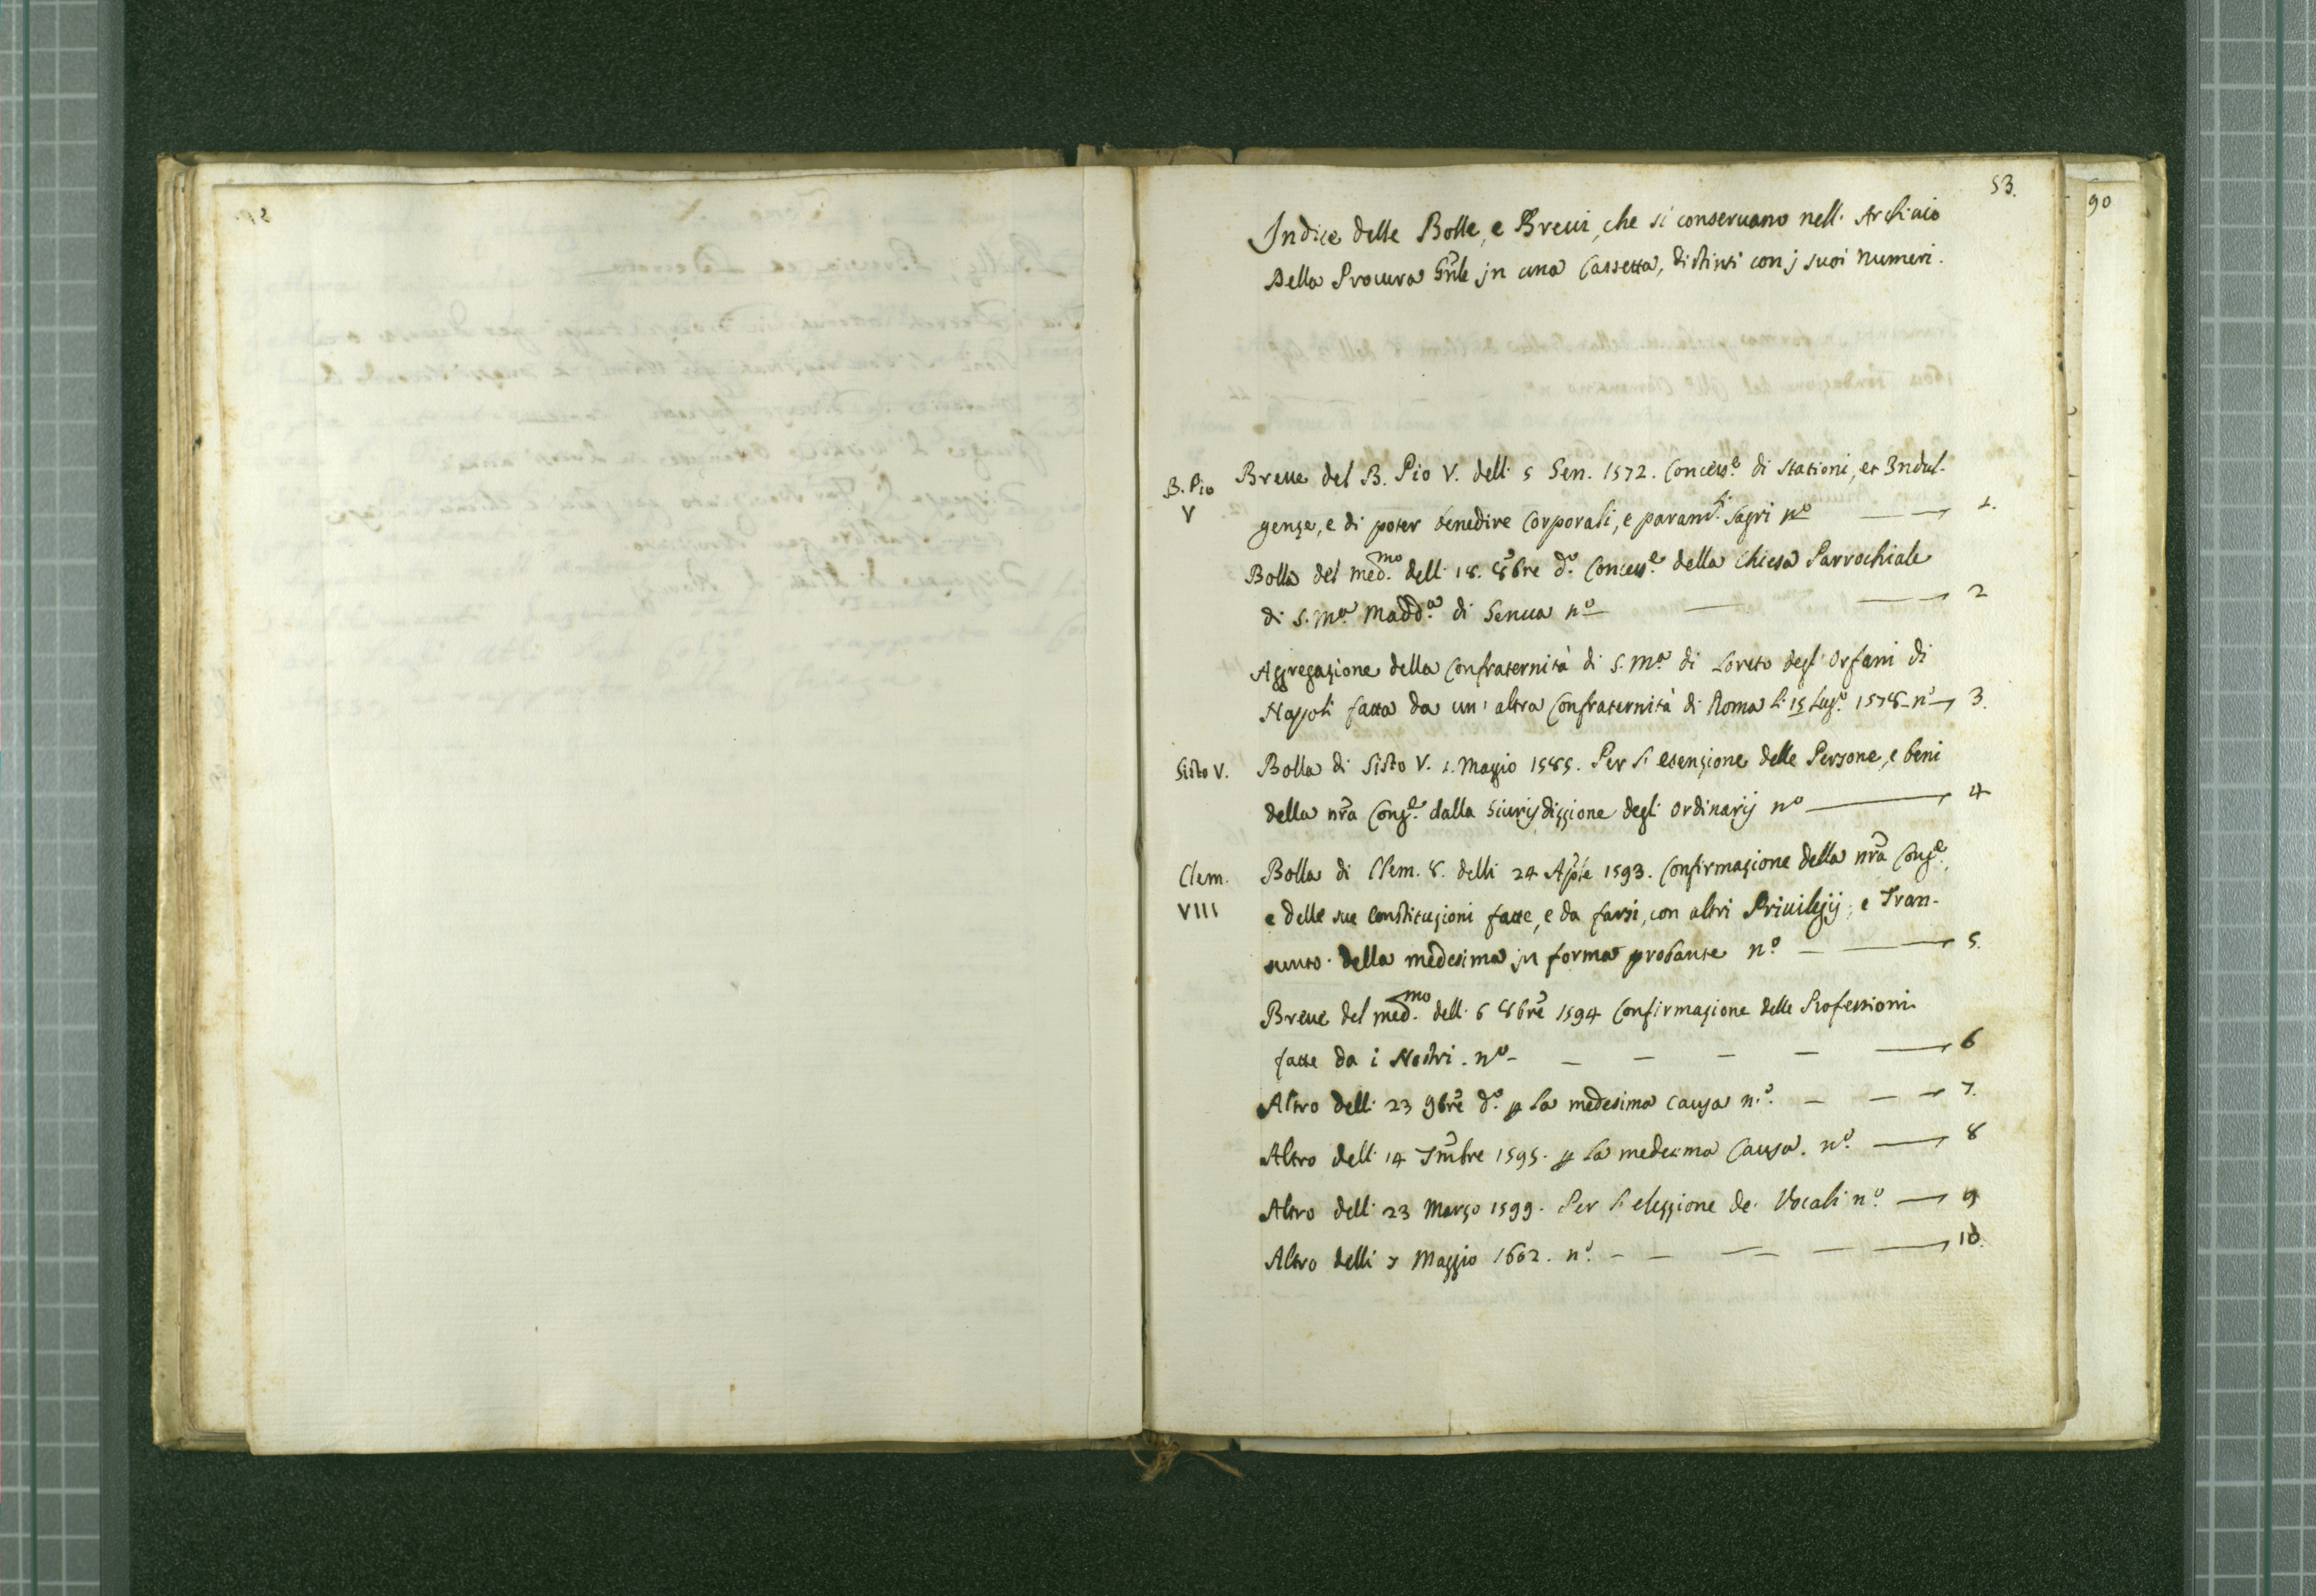 53.
90
Indice delle Bolle, e Breui, che si conseruano nell' Archiuio
Della Procura Gñle jn una Cassetta, distinti con j suoi numeri.
B. Pio
V
Breue del B. Pio V. dell' 5 Gen. 1572. Concess.e di Stationi, et Indul-
genze, e di poter benedire Corporali, e param.ti Sagri no 1.
Bolla del med.mo dell' 18. 8bre d.o Concess.e della Chiesa Parrochiale
di S. Ma. Madd.a di Genua no 2
Aggregazione della Confraternità di S. Ma. di Loreto degl' Orfani di
Napoli fatta da un' altra Confraternità di Roma li 15 Lug.o 1578 no 3.
Sisto V.
Bolla di Sisto V. 1. Maggio 1585. Per l' esenzione delle Persone, e beni
della nr̃a Cong.e dalla Giurisdizzione degl' Ordinarij no 4
Clem.
VIII
Bolla di Clem. 8. delli 24 Aple 1593. Confirmazione della nr̃a Cong.e,
e delle sue Constituzioni fatte, e da farsi, con altri Priuilegij, e Tran-
sunto della medesima jn forma probante no. 5.
Breue del med.mo dell' 6 8bre 1594 Confirmazione delle Professioni
fatte da i Nostri. no 6
Altro dell' 23 9bre d.o p la medesima causa no. 7.
Altro dell' 14 Xmbre 1595. p la medesima Causa. no. 8
Altro dell' 23 Marzo 1599. Per l' elezzione de' Vocali no. 9
Altro delli 7 Maggio 1602. no. 10.